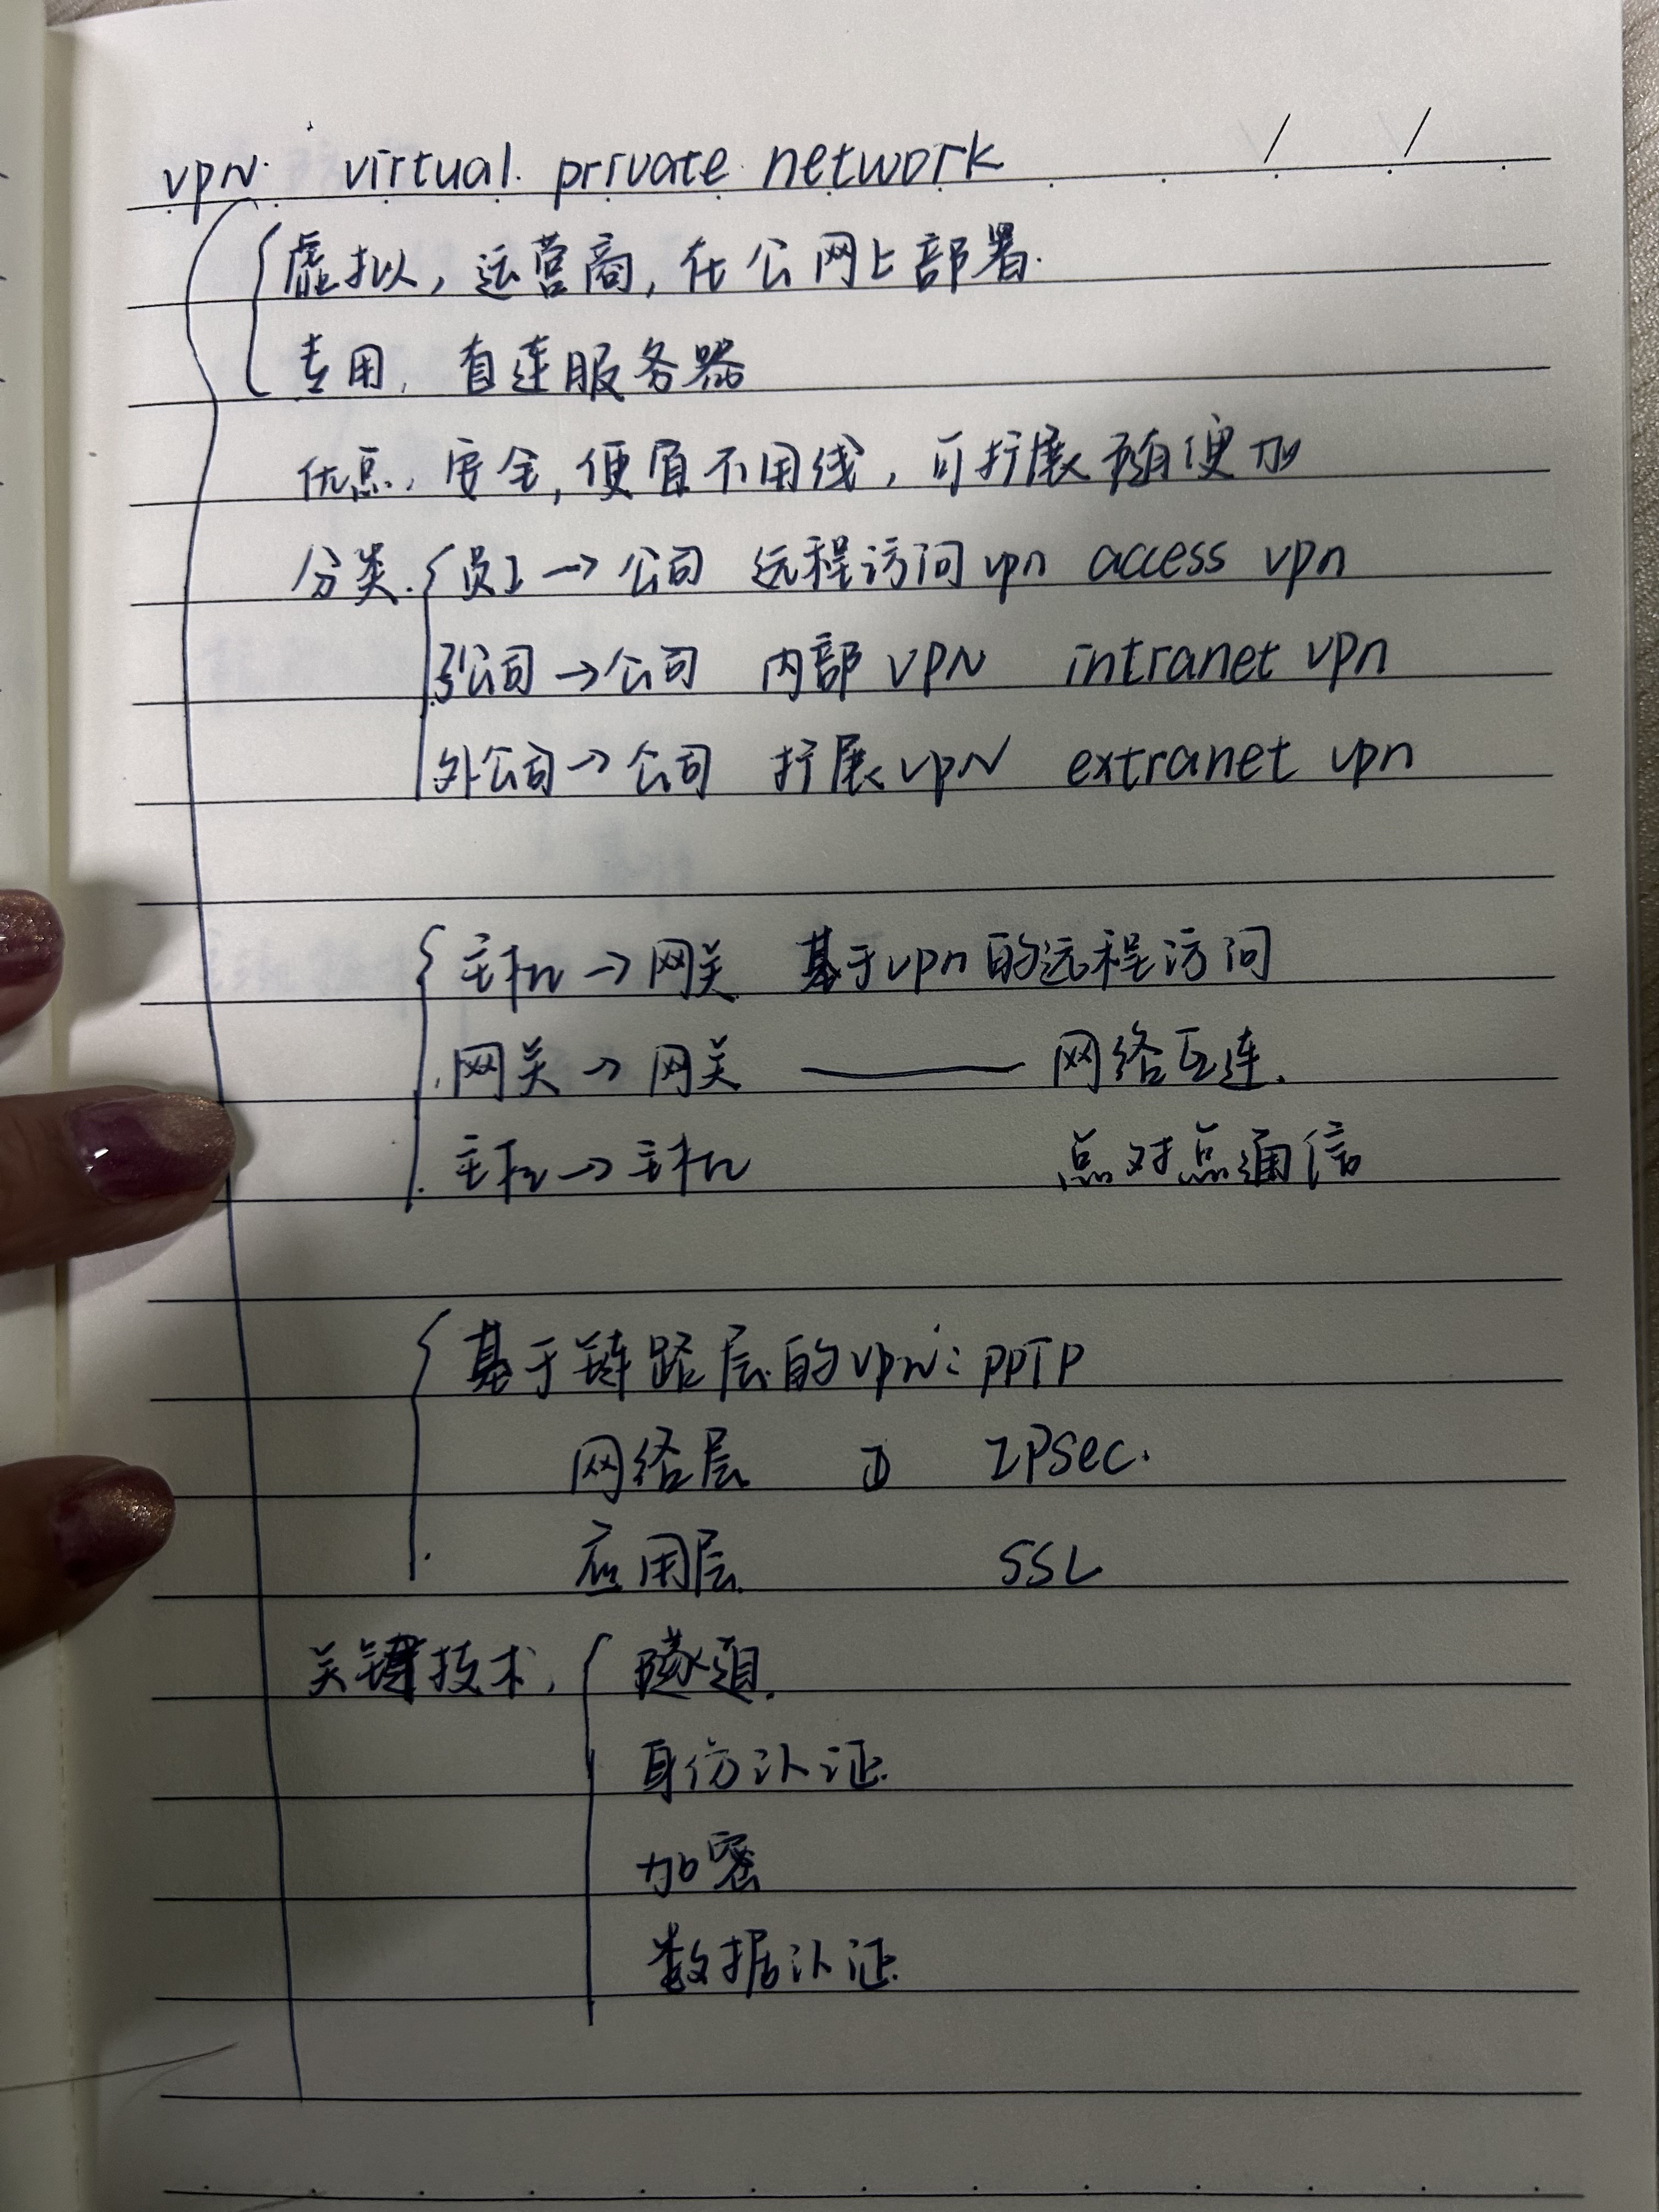 vpn. virtual private network / /
虚拟, 运营商, 在公网上部署.
专用, 直连服务器
优点, 安全, 便宜不用线, 可扩展 随便加
分类. 员工→公司 远程访问vpn access vpn
公司→公司 内部VPN intranet vpn
外公司→公司 扩展vpN extranet vpn
主机→网关 基于vpn的远程访问
网关→网关 —— 网络互连.
主机→主机 点对点通信
基于链路层的vpn: PPTP
网络层 IPsec.
应用层 SSL
关键技术, 隧道.
身份认证.
加密
数据认证.